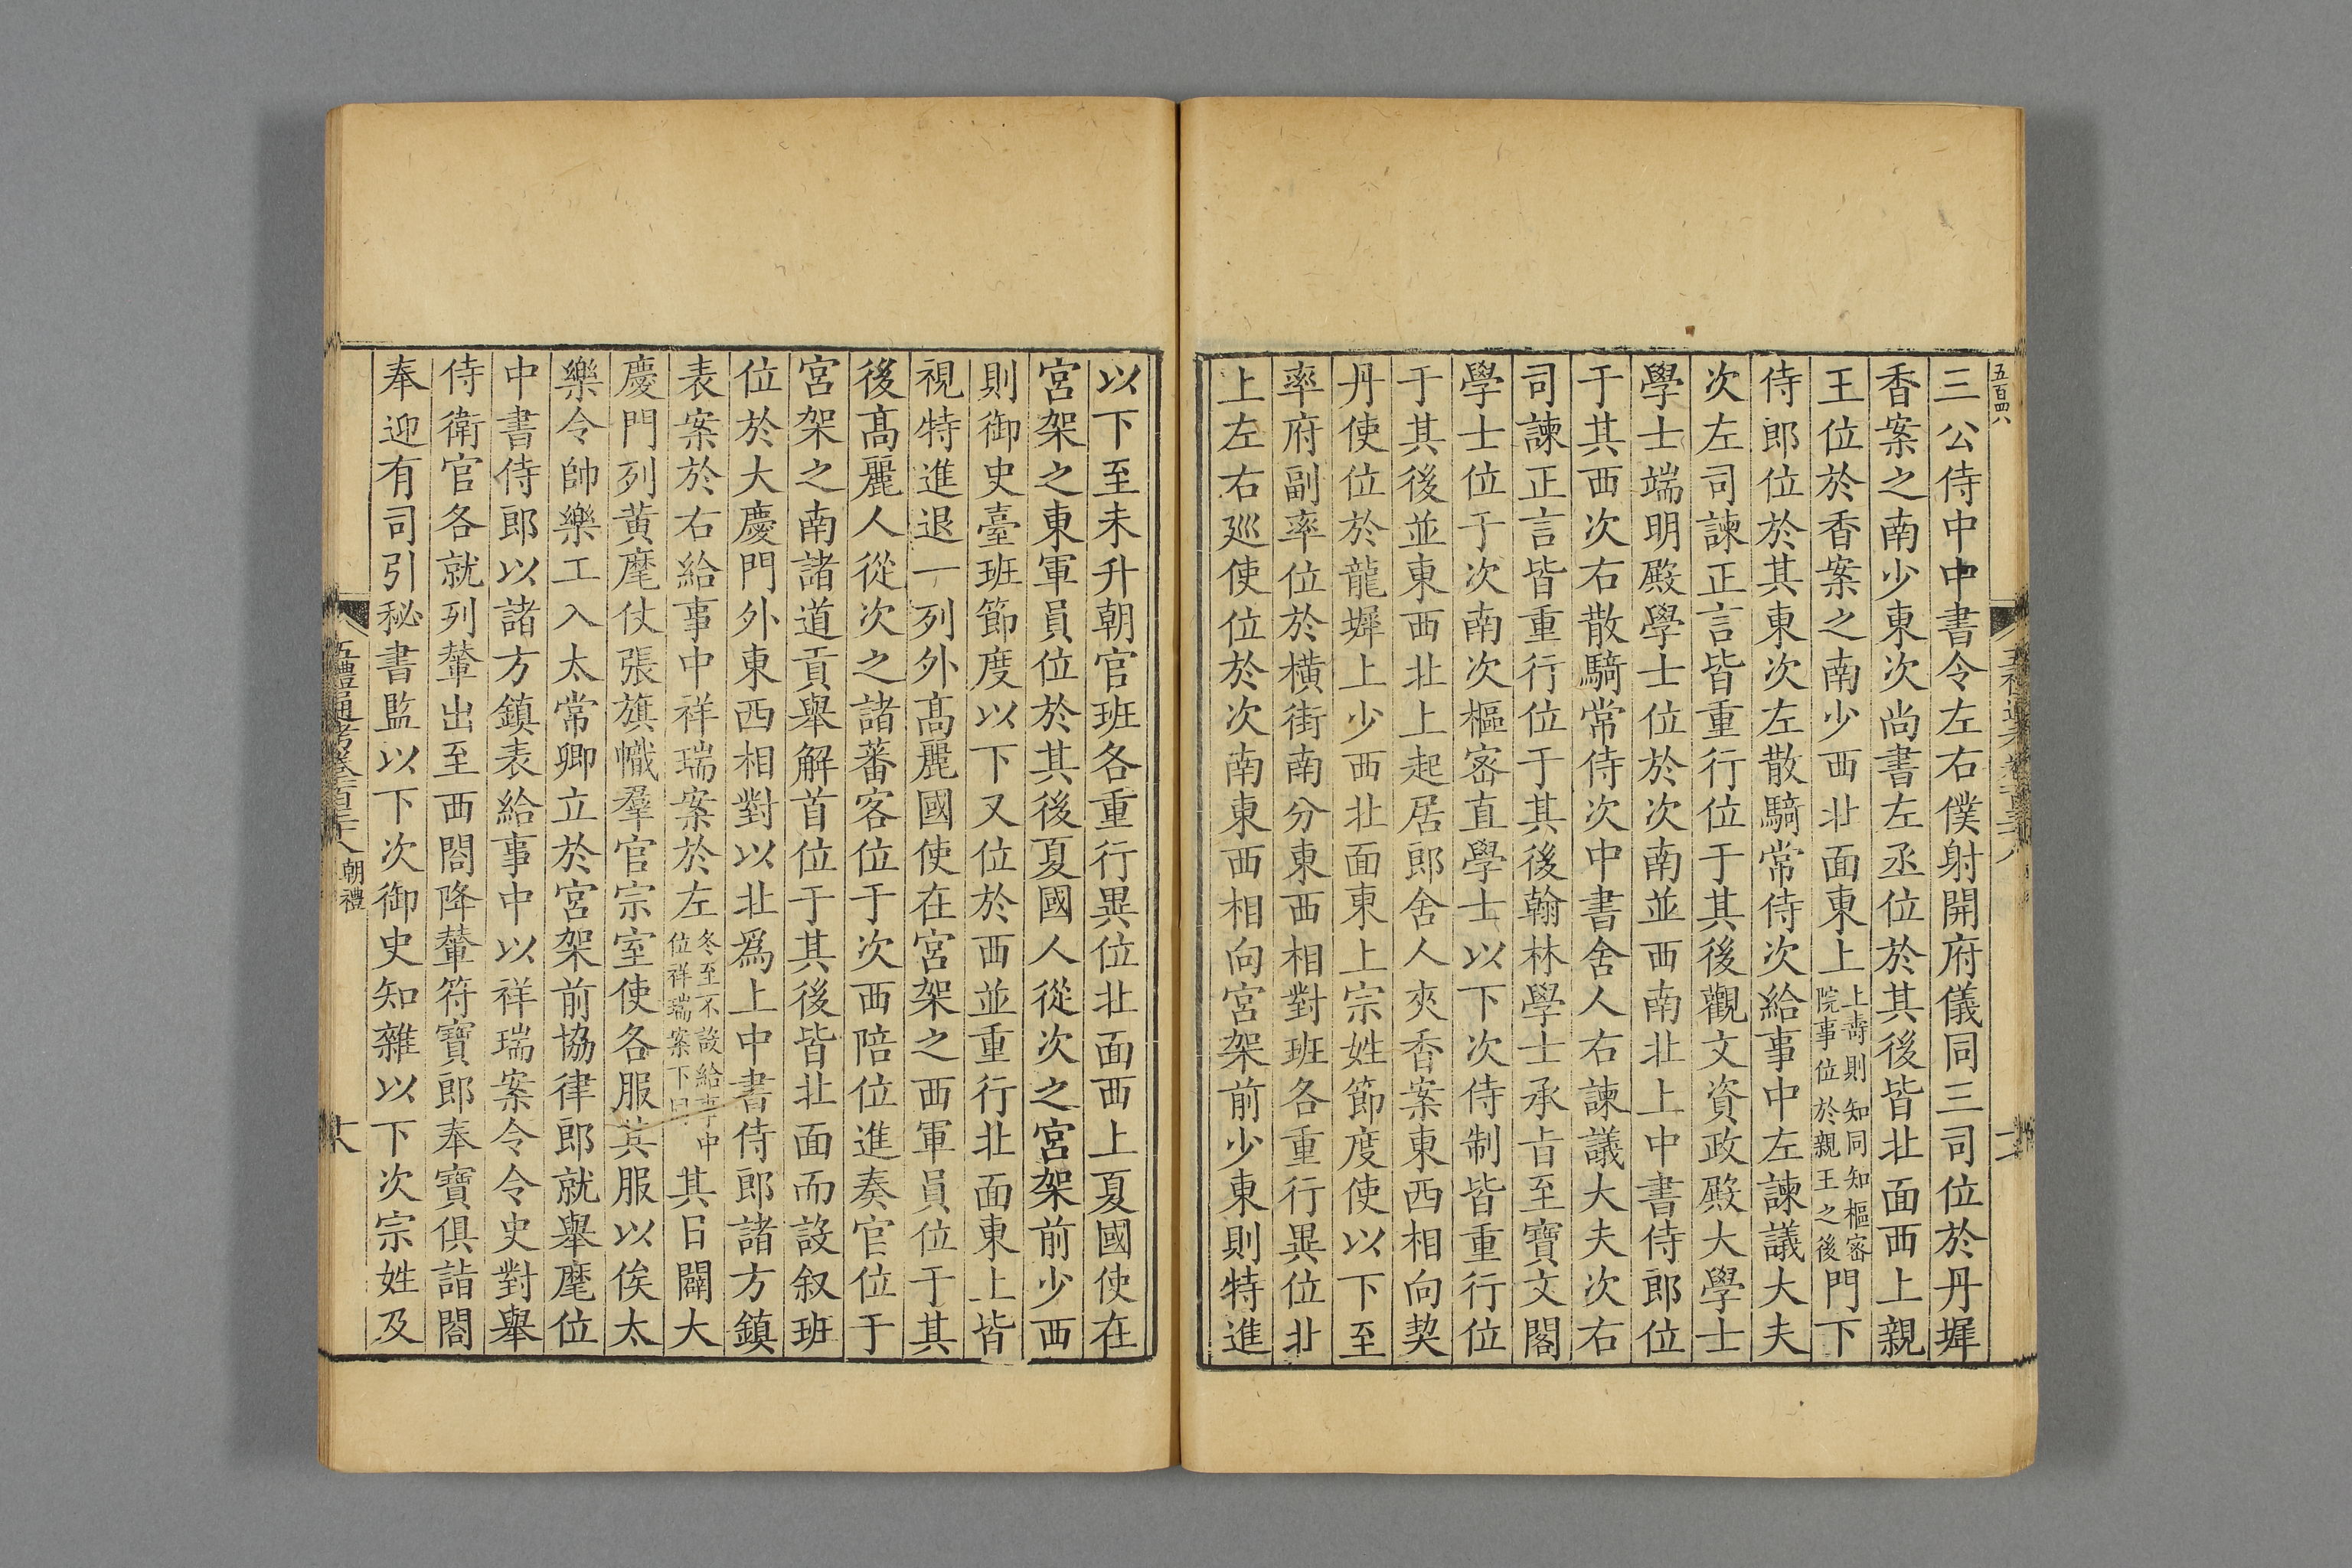 五百四八
三公侍中中書令左右僕射開府儀同三司位於丹墀
香案之南少東次尚書左丞位於其後皆北面西上親
王位於香案之南少西北面東上上壽則知同知樞密院事位於親王之後門下
侍郎位於其東次左散騎常侍次給事中左諫議大夫
次左司諫正言皆重行位于其後觀文資政殿大學士
學士端明殿學士位於次南並西南北上中書侍郎位
于其西次右散騎常侍次中書舍人右諫議大夫次右
司諫正言皆重行位于其後翰林學士承旨至寶文閣
學士位于次南次樞密直學士以下次侍制皆重行位
于其後並東西北上起居郎舍人夾香案東西相向契
丹使位於龍墀上少西北面東上宗姓節度使以下至
率府副率位於橫街南分東西相對班各重行異位北
上左右廵使位於次南東西相向宮架前少東則特進
以下至未升朝官班各重行異位北面西上夏國使在
宮架之東軍員位於其後夏國人從次之宮架前少西
則御史臺班節度以下又位於西並重行北面東上皆
視特進退一列外髙麗國使在宮架之西軍員位于其
後髙麗人從次之諸蕃客位于次西陪位進奏官位于
宮架之南諸道貢舉解首位于其後皆北面而設叙班
位於大慶門外東西相對以北爲上中書侍郎諸方鎮
表案於右給事中祥瑞案於左冬至不設給事中位祥瑞案下同其日闢大
慶門列黄麾仗張旗幟羣官宗室使各服其服以俟太
樂令帥樂工入太常卿立於宮架前協律郎就舉麾位
中書侍郎以諸方鎮表給事中以祥瑞案令令史對舉
侍衛官各就列輦出至西閤降輦符寶郎奉寶俱詣閤
奉迎有司引秘書監以下次御史知雜以下次宗姓及
五禮通考卷一百三十八 朝禮